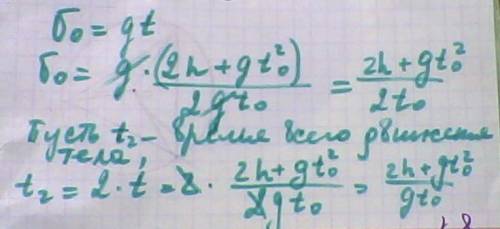 σ₀ = gt
σ₀ = g · (2h + gt₀²) / 2gt₀ = (2h + gt₀²) / 2t₀
Пусть t₂ – время всего движения
тела,
t₂ = 2 · t = 2 · (2h + gt₀²) / 2gt₀ = (2h + gt₀²) / gt₀